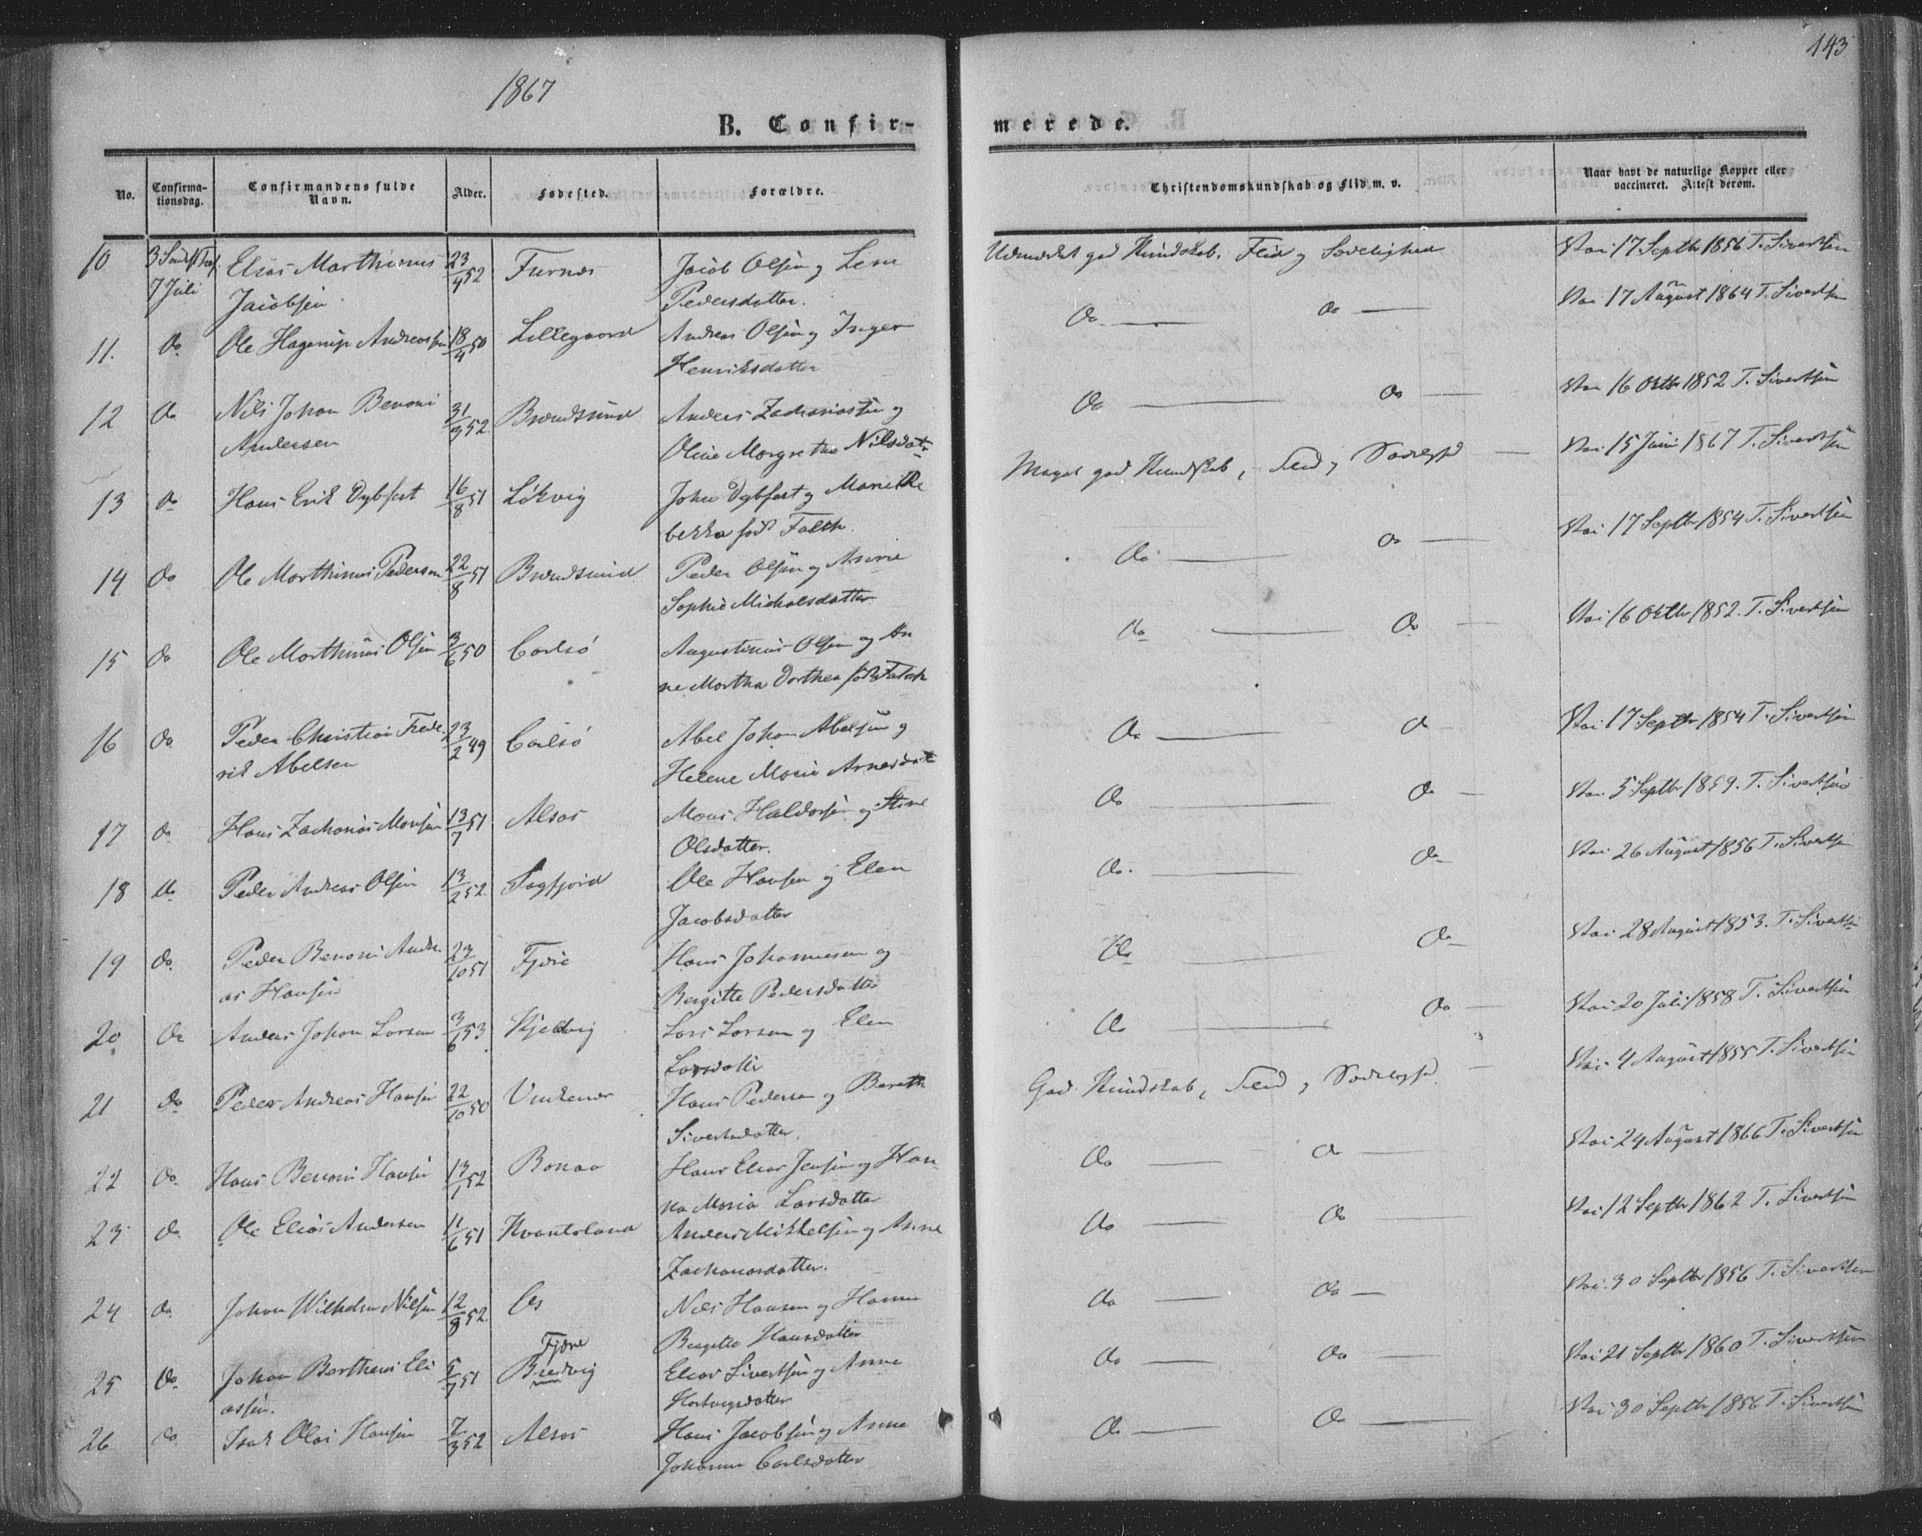 143
1867
B. Confir-
merede.
No.
Confirma-
tionsdag.
Confirmandens fulde
Navn.
Alder.
Fødested.
Forældre.
Christendomskundskab og Flid m. v.
Naar havt de naturlige Kopper eller
vaccineret. Attest derom.
10 3 Sönd. f. Tref Elias Marthinus 23/4 52 Furnæs Jacob Olsen og Lene Udmærket god Kundskab, Flid og Sædelighed Vac 17 Septbr 1856 T. Sivertsen
7 Juli Jacobsen Pedersdatter.
11. do Ole Hagerup Andreassen 18/4 50 Lillegaard Andreas Olsen og Inger Do — do — Vac 17 August 1864 T. Sivertsen
Henriksdatter
12 do Nils Johan Benoni 31/3 52 Brændsund Anders Zachariassen og Do — do — Vac 16 Octbr 1852 T. Sivertsen
Andersen Oline Margrethe Nilsdat-
13 do Hans Erik Dybfest 16/8 51 Løkvig John Dybfest og Marie Re Meget god Kundskab, Flid og Sædeligd — Vac 15 Juni 1867 T. Sivertsen
bekka født Falch.
14 do Ole Marthinus Pedersen 22/8 51 Brændsund Peder Olsen og Anne Do — do — Vac 17 Septbr 1854 T. Sivertsen
Sophie Michalsdatter
15 do Ole Marthinus Olsen 3/6 50 Carlsö Augustinus Olsen og An do — do — Vac 16 Octbr 1852. T. Sivertsen
ne Martha Dorthea født Falch
16 do Peder Christian Frede 23/2 49 Carlsö Abel Johan Abelsen og Do — do Vac 17 Septbr 1854 T. Sivertsen
rik Abelsen Helene Maria Arnesdat
17 do Hans Zacharias Monsen 13/7 51 Alsos Mons Haldorsen og Stine Do — do — Vac 5 Septbr 1859. T. Sivertsen
Olsdatter.
18 do Peder Andreas Olsen 13/2 52 Sagfjord Ole Hansen og Elen Do. — do Vac 26 August 1856 T. Sivertsen
Jacobsdatter
19 do. Peder Benoni Andre 23/10 51 Fjære Hans Johannesen og Do — do Vac 28 August 1853. T. Sivertsen
as Hansen Bergitte Pedersdatter
20 do Anders Johan Larsen 3/6 53 Kjeldvig Lars Larsen og Elen Do — do — Vac 20 Juli 1858 T. Sivertsen
Larsdatter
21 do Peder Andreas Hansen 22/10 50 Vinkenæs Hans Pedersen og Bereth God Kundskab, Flid og Sædeligd. — Vac 4 August 1855 T. Sivertsen
Sivertsdatter.
22 do. Hans Benoni Hansen 13/1 52 Bonaa Hans Elias Jensen og Han Do — do — Vac 24 August 1866 T. Sivertsen
na Maria Larsdatter
23 do. Ole Elias Andersen 11/6 51 Kvantoland Anders Mikkelsen og Anne Do — do — Vac 12 Septbr 1862 T. Sivertsen
Zachariasdatter.
24 do. Johan Wilhelm Nilsen 12/8 52. Os Nils Hansen og Hanna Do — do — Vac 30 Septbr 1856 T. Sivertsen
Bergitte Hansdatter
Fjære
25 do Johan Bertheus Eli 5/7 51 Bredvig Elias Sivertsen og Anne Do — do — Vac 21 Septbr 1860 T. Sivertsen
assen. Hartvigsdatter
26 do Isak Olai Hansen 7/3 52 Alsos Hans Jacobsen og Anne Do — do — Vac 30 Septbr 1856 T. Sivertsen
Johanna Carlsdatter